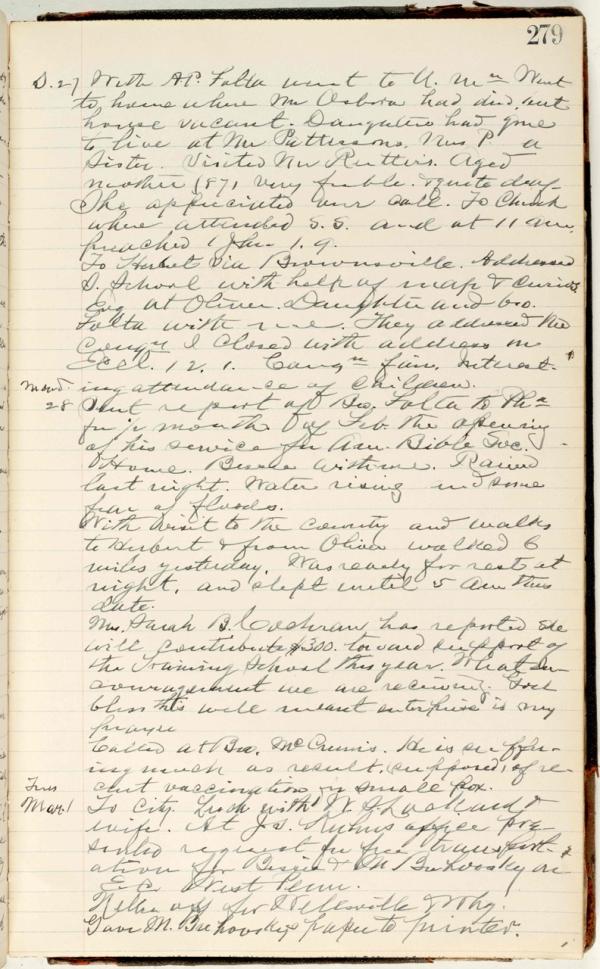 279
S. 27 With A.P. Folta went to U. Went
to home where Mr Osborn had died, but
house vacant. Daughters had gone
to live at Mr Pattersons, Mrs P. a
sister. Visited Mr Ruttirs. Aged
mother (87) very feeble. & quite deaf.
She appreciated our call. To Church
where attended S.S. and at 11 am.
preached 1 John 1.9.
To Herbert via Brownsville. Addressed
S. School with help of map &
at Oliver. Daughter and bro.
Folta with me. They addressed the
Congn I closed with address on
Eccl. 12.1. Congn fair. Interest-
ing attendance of children.
Mond. 28 Sent report of Bro. Folta to
for ½ month of Feb. the opening
of his service for Am. Bible Soc.
Home. Bessie with me. Rained
last night. Water rising and some
fear of floods.
With visit to the country and walks
to Herbert & from Oliver walked 6
miles yesterday. Was ready for rest at
night, and slept until 5 am this
date.
Mrs. Sarah B. Cochran has reported she
will contribute $300. toward support of
the Training School this year. What en-
couragement we are receiving. God
bless this well meant enterprise is my
prayer
Called at Bro. McCrumis. He is suffer-
ing much as result, supposed, of re-
cent vaccination in small pox.
Tues Mar. 1 To City. Lunch with W. &
wife. At J.S. office pre
sented request for free transport-
ation for Bessie & M. Buhovsky on
West Penn.
off for Wellsville & Whg.
Gave M. Buhovsky's paper to printer.